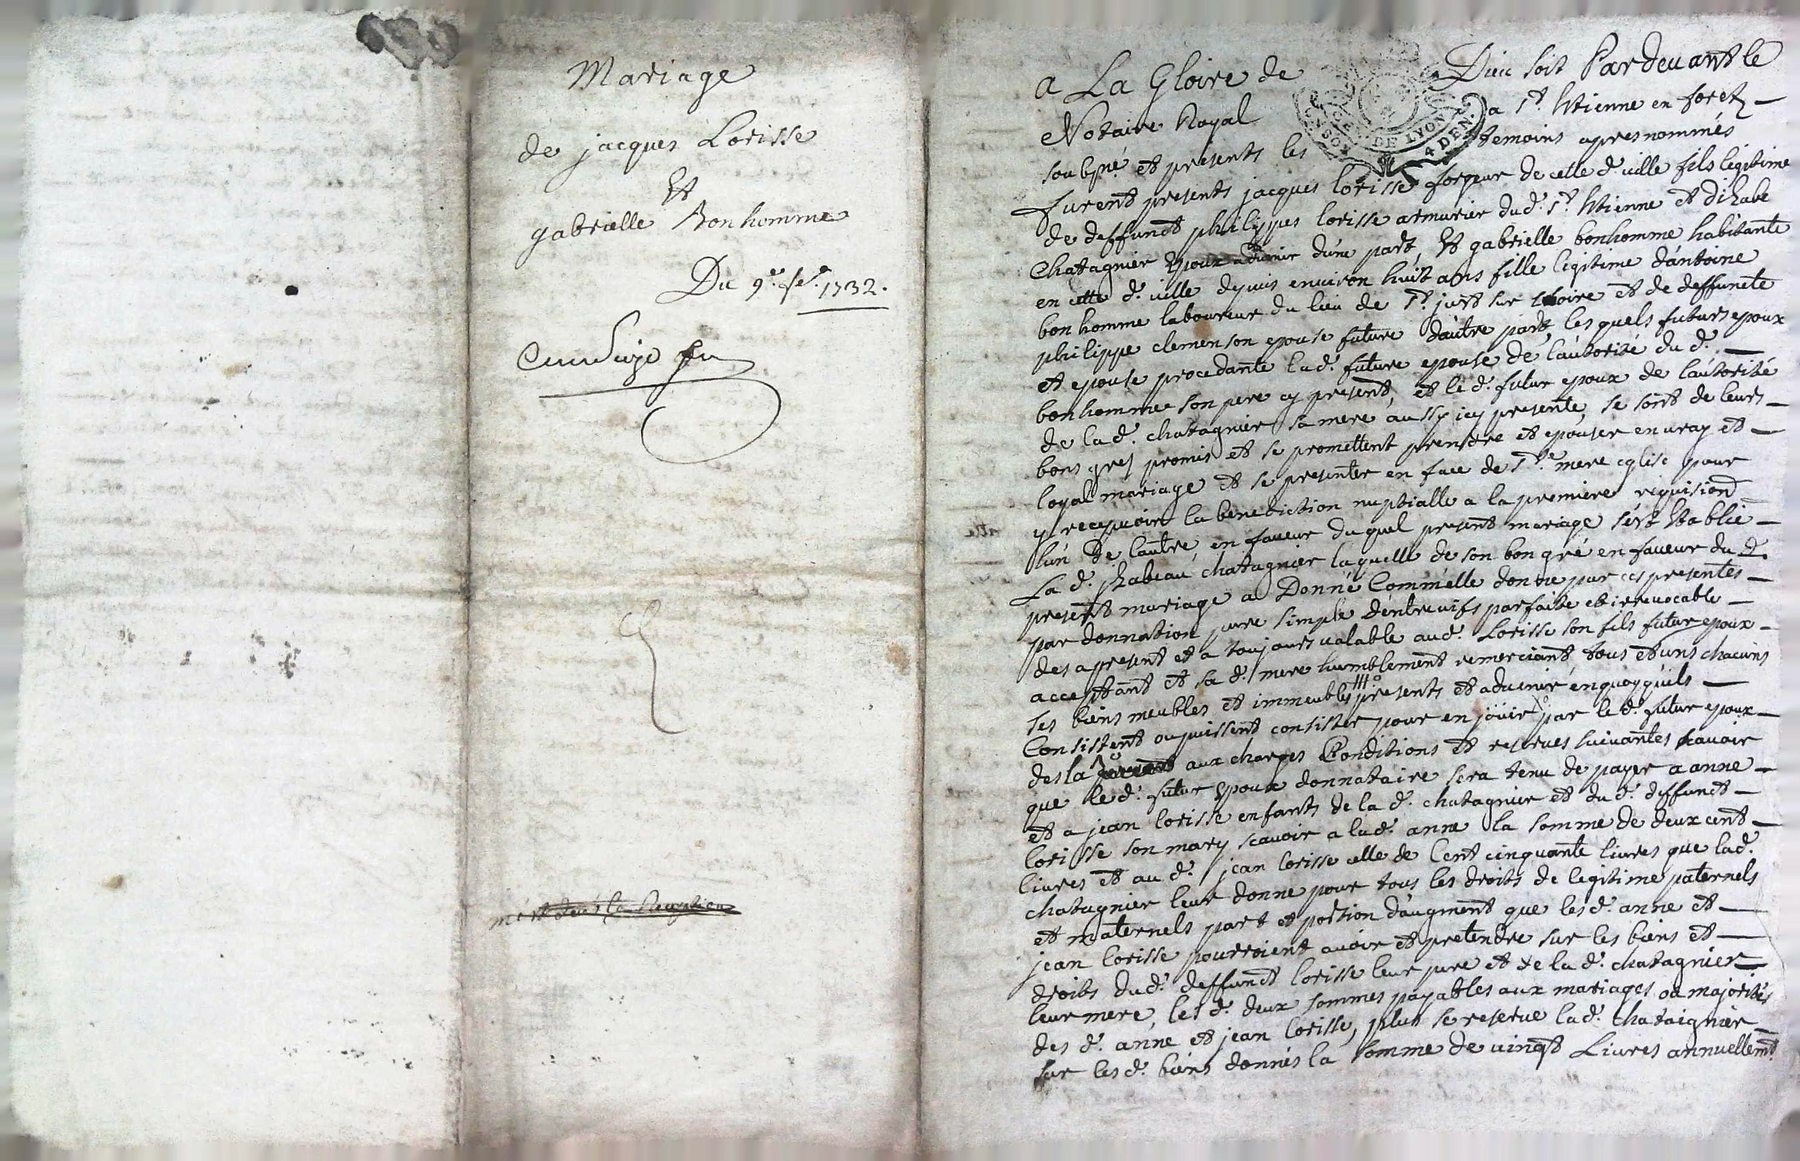 Mariage
de jacques Lorisse
Et
gabrielle Bonhomme
Du 9e. fe. 1732.
a La Gloire de Dieu soit Pardevant le
Notaire Royal a St. Etienne en forez
soubsné et présents les temoins apresnommés
furent presents jacques lorisse forgeur de cette d. ville fils legitime
de deffunct philippes lorisse armurier dud. St. Etienne et d'izabe
Chatagnier Epoux advenir d'une part, Et gabrielle bonhomme habitante
en cette d. ville depuis environ huit ans fille legitime d'antoine
bonhomme laboureur du lieu de St. just sur loire et de deffuncte
philippe clemenson epouse future d'autre part, les quels futurs epoux
et epouse procedante lad. future epouse de l'autorité du d.
bonhomme son pere cy present, et le d. futur epoux de l'autorité
de la d. chatagnier sa mere aussy icy presente, se sont de leurs
bons grez promis et se promettent prendre et epouser en vray et
loyal mariage et se presenter en face de Ste. mere eglise pour
y recepvoir la benediction nuptialle a la premiere requision
l'un De l'autre, en faveur du quel present mariage s'est Etablie
La d. Izabeau chatagnier laquelle de son bon gré en faveur du d.
present mariage a Donné Comm'elle donne par ces presentes
par donnation pure simple d'entre vifs parfaite et irrevocable
des a present et a toujours valable aud. Lorisse son fils futur epoux
acceptant et sa d. mere humblement remerciant, tous et uns chacuns
ses biens meubles et immeubles presents et advenir en quoy qu'ils
Consistent ou puissent consister pour en joüir par le d. futur epoux
des la aux charges Conditions et reserves suivantes scavoir
que le d. futur Epoux donnataire sera tenu de payer a anne
et a jean lorisse enfants de la d. chatagnier et du d. deffunct
lorisse son mary scavoir a lad. anne la somme de deux cent
livres et au d. jean lorisse celle de Cent cinquante livres que lad.
chatagnier leur donne pour tous les droits de legitime paternels
et maternels part et portion d'augment que les d. anne et
jean lorisse pourroient avoir et pretendre sur les biens et
droits dud. deffunct lorisse leur pere et de la d. chatagnier
leur mere, les d. deux sommes payables aux mariages ou majorités
des d. anne et jean lorisse, plus se reserve lad. chataignier
sur les d. biens donnés la somme de vingt Livres annuellemt.